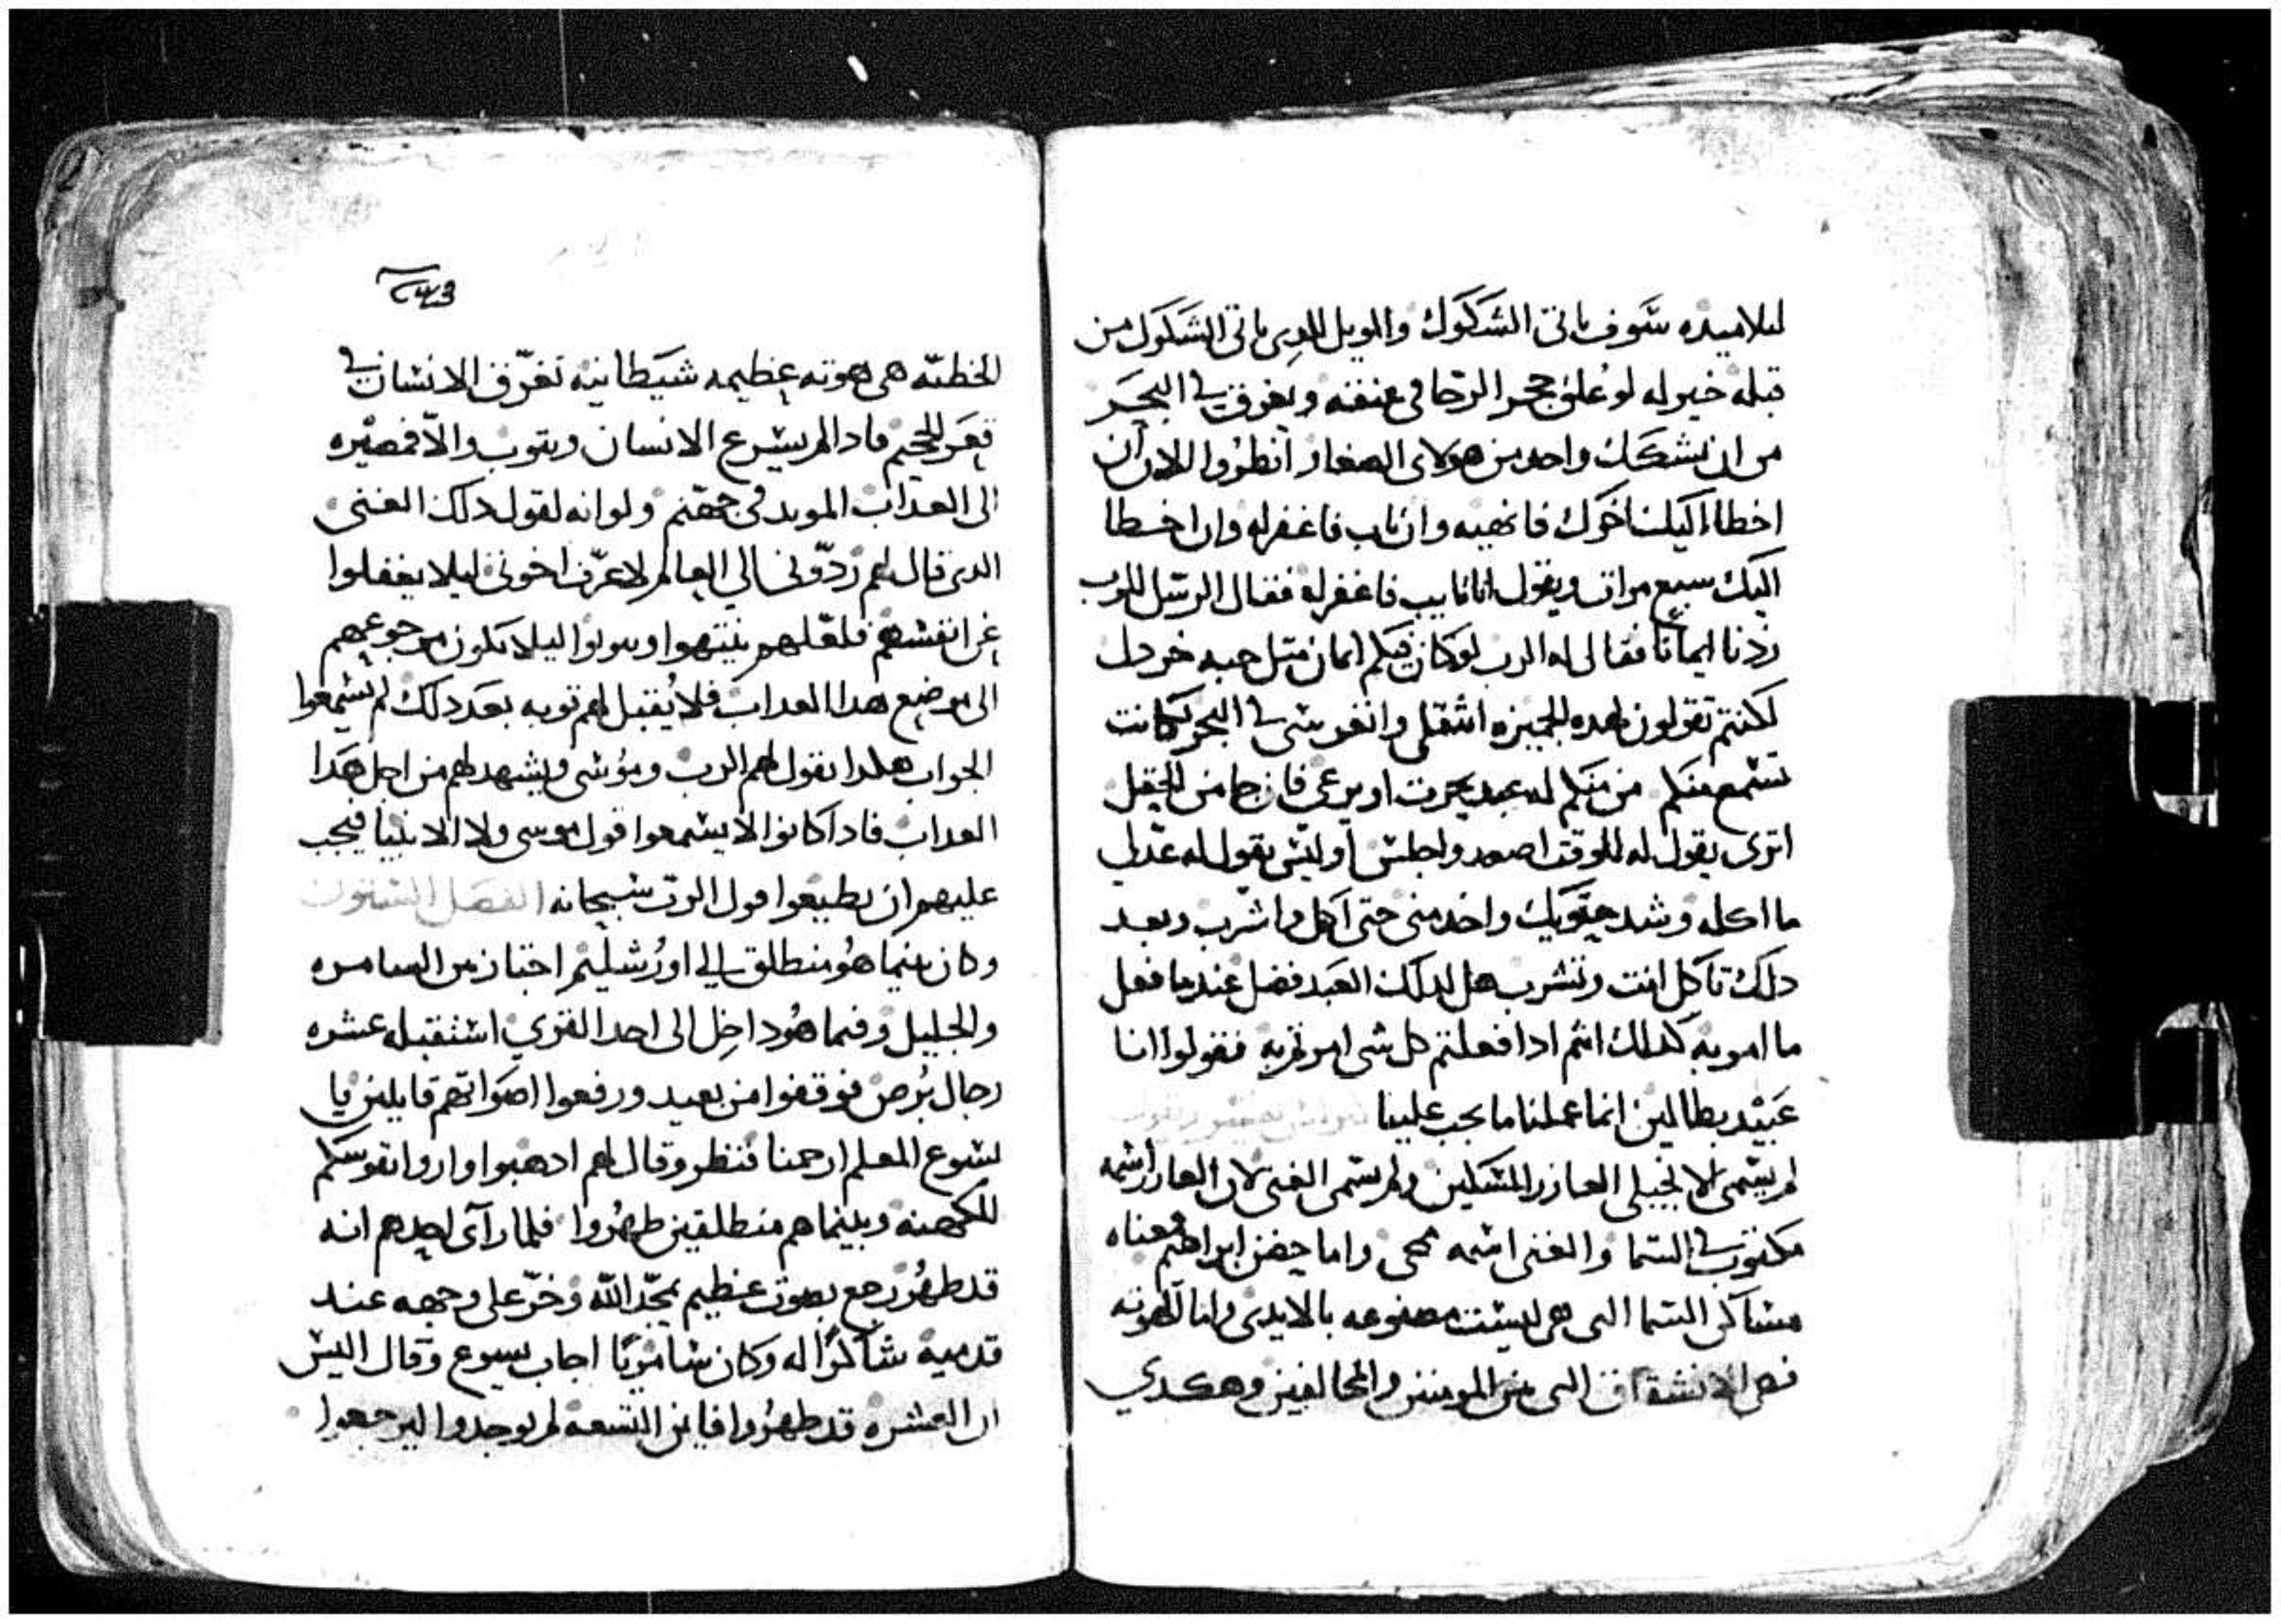 لتلاميده سوف تاتى الشكوك والويل للدي تاتى الشكوك من
قبله خير له لو علق حجر الرحا فى عنقه ويغرق فى البحر
من ان يشكك واحد من هولاى الصغار انظروا الان ان
اخطا اليك اخوك فانهيه وان تاب فاغفر له وان اخطا
اليك سبع مرات ويقول انا تايب فاغفر له فقال الرسل للرب
زدنا ايمانا فقال له الرب لو كان فيكم ايمان متل حبه خردل
لكنتم تقولون لهده الجميزه انتقلى وانغرسى فى البحر لكانت
تسمع منكم من منكم له عبد يحرت او يرعى فان جا من الحقل
اترى يقول له للوقت اصعد واجلس او ليس يقول له عد لى
ما اكله وشد حقويك واخدمنى حتى اكل واشرب وبعد
دلك تاكل انت وتشرب هل لدلك العبد فضل عندما فعل
ما امر به كدلك انتم ادا فعلتم كل شى امرتم به فقولوا انا
عبيد بطالين انما عملنا ما يجب علينا
لم يسمى الانجيلى العازر المسكين ولم يسمى الغنى لان العازر اسمه
مكتوب فى السما والغنى اسمه محى واما حضن ابراهيم معناه
مساكن السما التى هى ليست مصنوعه بالايدى واما الهوته
فهى الانشقاق التى بين المومنين والمخالفين وهكدي
٢٤٣
الخطيّه هى هوته عظيمه شيطانيه تغرّق الانسان فى
قعر الجحيم فادا لم يسرع الانسان ويتوب والّا فمصيره
الى العداب الموبد فى جهنم ولو انه لقول دلك الغنى
الدى قال لهم ردّونى الي العالم لاعرّف اخوتى ليلا يغفلوا
عن انفسهم فلعلهم ينتهوا ويتوبوا ليلا تكون مرجوعهم
الى موضع هدا العداب فلا يُقبل لهم توبه بعد دلك لم يسمعوا
الجواب هكدا يقول لهم الرب وموسى ويشهد لهم من اجل هدا
العداب فادا كانوا لا يسمعوا قول موسى ولا الانبيا فيجب
عليهم ان يطيعوا قول الرب سبحانه الفصل الستون
وكان بينما هو منطلق الي اورشليم اجتاز بين السامره
والجليل وفيما هو داخل الى احد القري استقبله عشره
رجال بُرص فوقفوا من بعيد ورفعوا اصواتهم قايلين يا
يسوع المعلم ارحمنا فنظر وقال لهم ادهبوا واروا نفوسكم
للكهنه وبينما هم منطلقين طهُروا فلما رآى احدهم انه
قد طهُر رجع بصوت عظيم يمجّد الله وخرّ على وجهه عند
قدميه شاكرًا له وكان سامريًا اجاب يسوع وقال اليس
ان العشره قد طهُروا فاين التسعه لم يوجدوا ليرجعوا